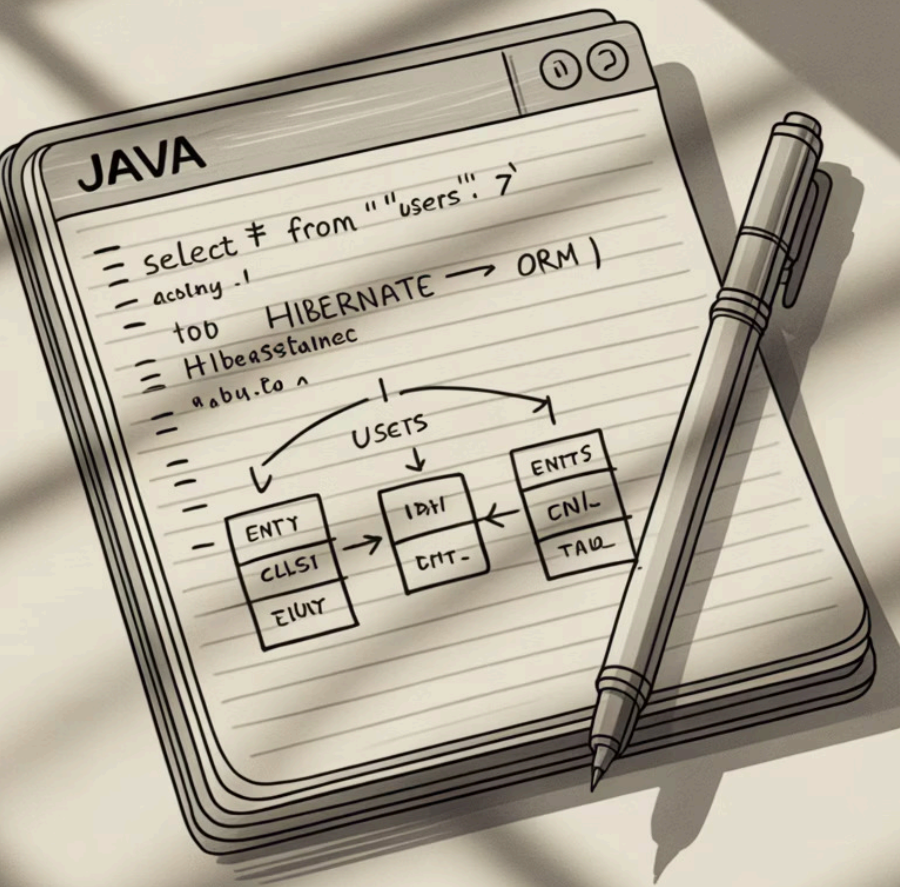 JAVA
select * from ""users"". 7
acolny .!
tob HIBERNATE → ORM )
HIbeasstainec
USETS
ENTY
CLLSI
EIUIY
ENITS
CNI_
TAIQ_